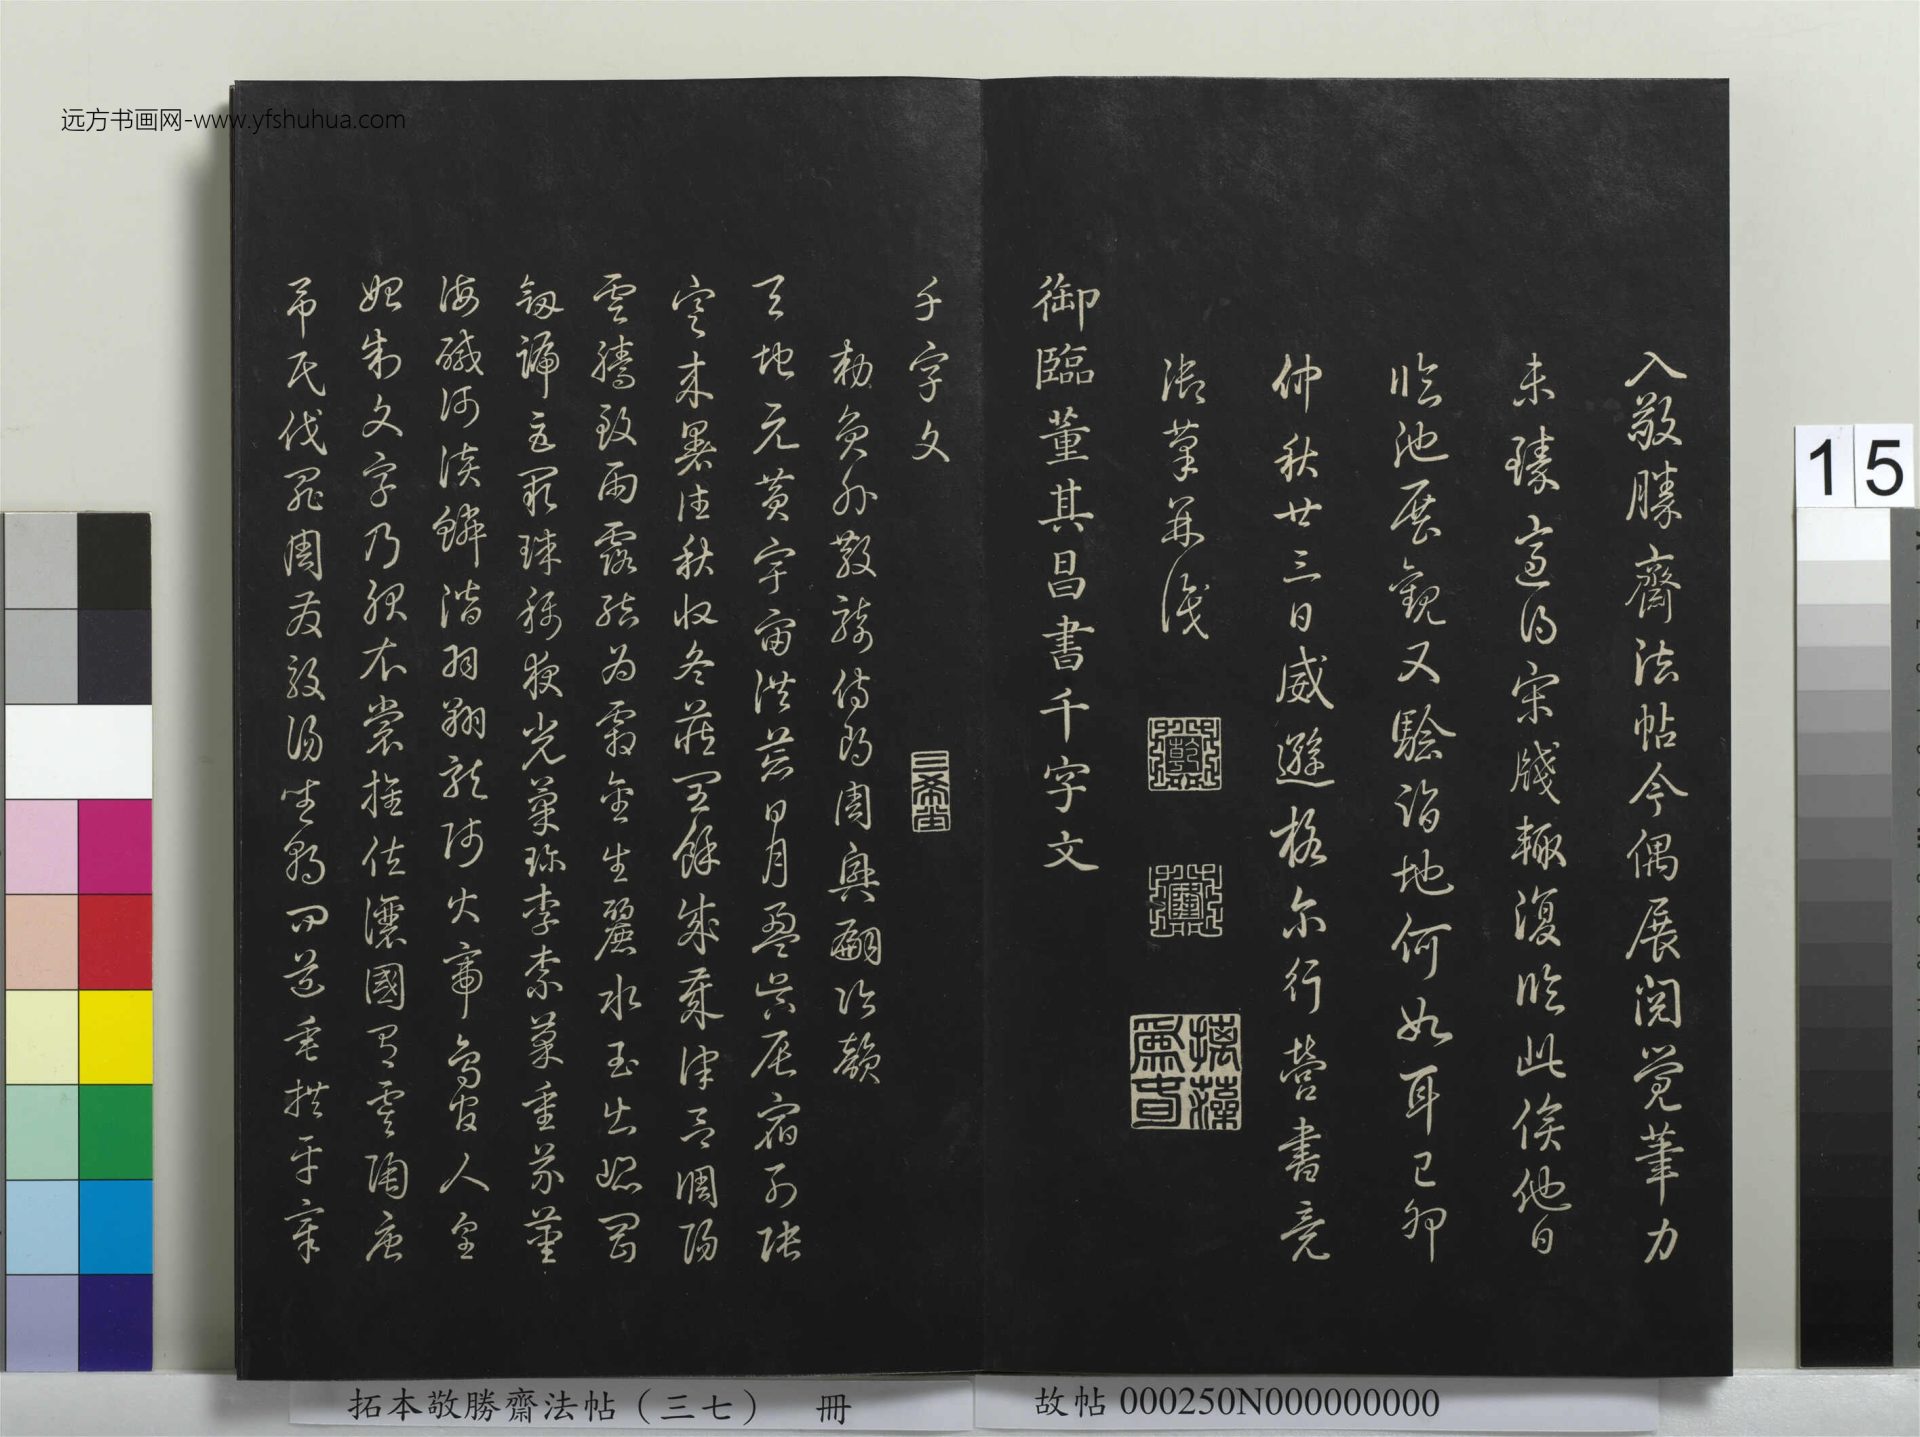 远方书画网-www.yfshuhua.com
入敬勝齋法帖今偶展閱覺筆力
未臻適得宋牋輒復臨此俟他日
臨池展觀又驗詣地何如耳己卯
仲秋廿三日威遜格尔行營書竟
濡筆并識
乾
隆
摛藻為春
御臨董其昌書千字文
千字文
三希堂
勅員外散騎侍郎周興嗣次韻
天地元黃宇宙洪荒日月盈昃辰宿列張
寒來暑往秋收冬藏閏餘成歲律呂調陽
雲騰致雨露結為霜金生麗水玉出崑岡
劍號巨闕珠稱夜光菓珍李柰菜重芥薑
海醎河淡鱗潛羽翔龍師火帝鳥官人皇
始制文字乃服衣裳推位讓國有虞陶唐
弔民伐罪周發殷湯坐朝問道垂拱平章
15
拓本敬勝齋法帖（三七） 冊
故帖 000250N000000000